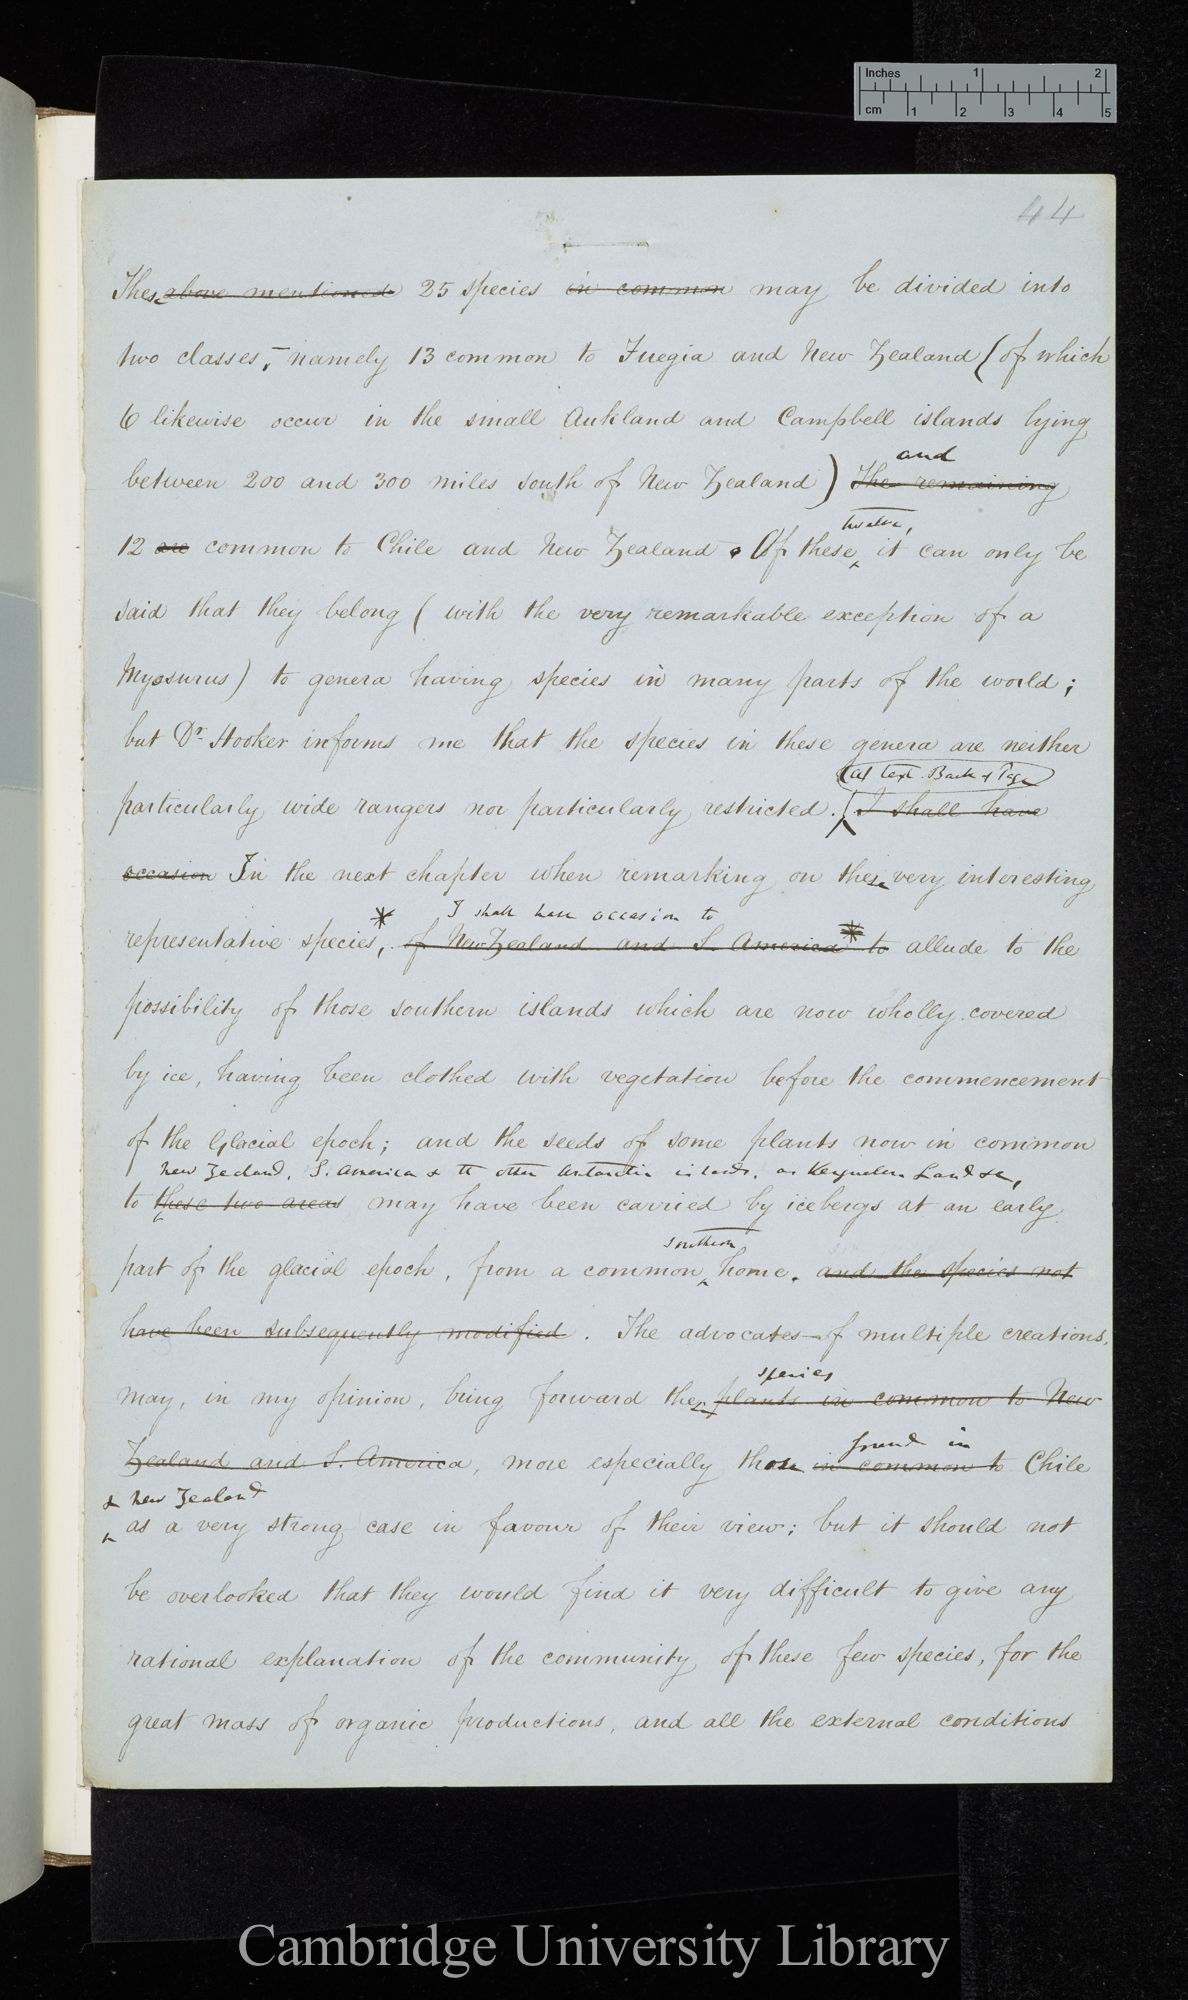 Inches 1 2
cm 1 2 3 4 5
44
These above mentioned 25 species in common may be divided into
two classes, – namely 13 common to Fuegia and New Zealand (of which
6 likewise occur in the small Aukland and Campbell islands lying
and
between 200 and 300 miles south of New Zealand) The remaining
twelve,
12 are common to Chile and New Zealand. Of these it can only be
said that they belong (with the very remarkable exception of a
Myosurus) to genera having species in many parts of the world;
but Dr. Hooker informs me that the species in these genera are neither
Back of Page
particularly wide rangers nor particularly restricted. (I shall have
occasion In the next chapter when remarking on these very interesting
I shall have occasion to
representative species*, of New Zealand and S. America* to allude to the
possibility of those southern islands which are now wholly covered
by ice, having been clothed with vegetation before the commencement
of the Glacial epoch; and the seeds of some plants now in common
New Zealand, S. America & the other Antarctic islands, as Kerguelen Land &c,
to these two areas may have been carried by icebergs at an early
southern
part of the glacial epoch, from a common home. and the species not
have been subsequently modified. The advocates of multiple creations,
species
may, in my opinion, bring forward these plants in common to New
found in
Zealand and S. America, more especially those in common to Chile
& New Zealand
as a very strong case in favour of their view; but it should not
be overlooked that they would find it very difficult to give any
rational explanation of the community of these few species, for the
great mass of organic productions, and all the external conditions
Cambridge University Library